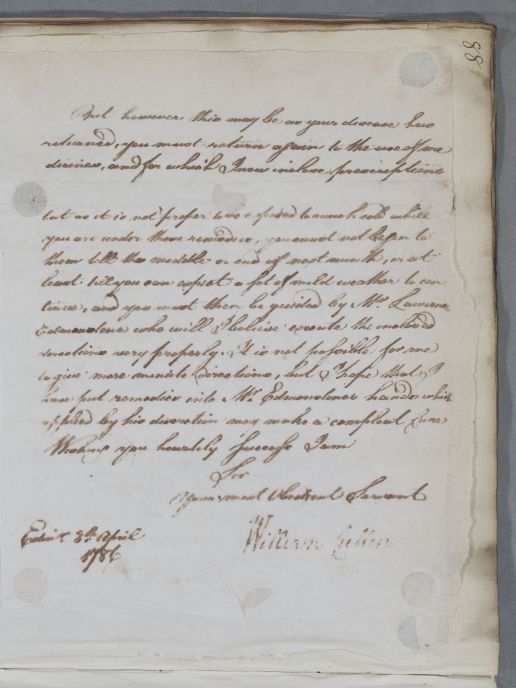 88
But however this may be as your disease has
returned, you must return again to the use of me
dicines, and for which I now inclose prescriptions
but as it is not proper to be exposed to much cold while
you are under these remedies, you must not begin to
them till the middle or end of next month, or at
least till you can expect a fit of mild weather to con
tinue, and you must then be guided by Mr. Laurence
Edmonstone who will I believe execute the inclosed
directions very properly. It is not possible for me
to give more minute directions, but I hope that I
have put remedies into Mr. Edmonstones hands which
applied by his discretion may make a compleat Cure
Wishing you heartily Success I am
Sir
Your most Obedient Servant
William Cullen
Edinr. April
1786